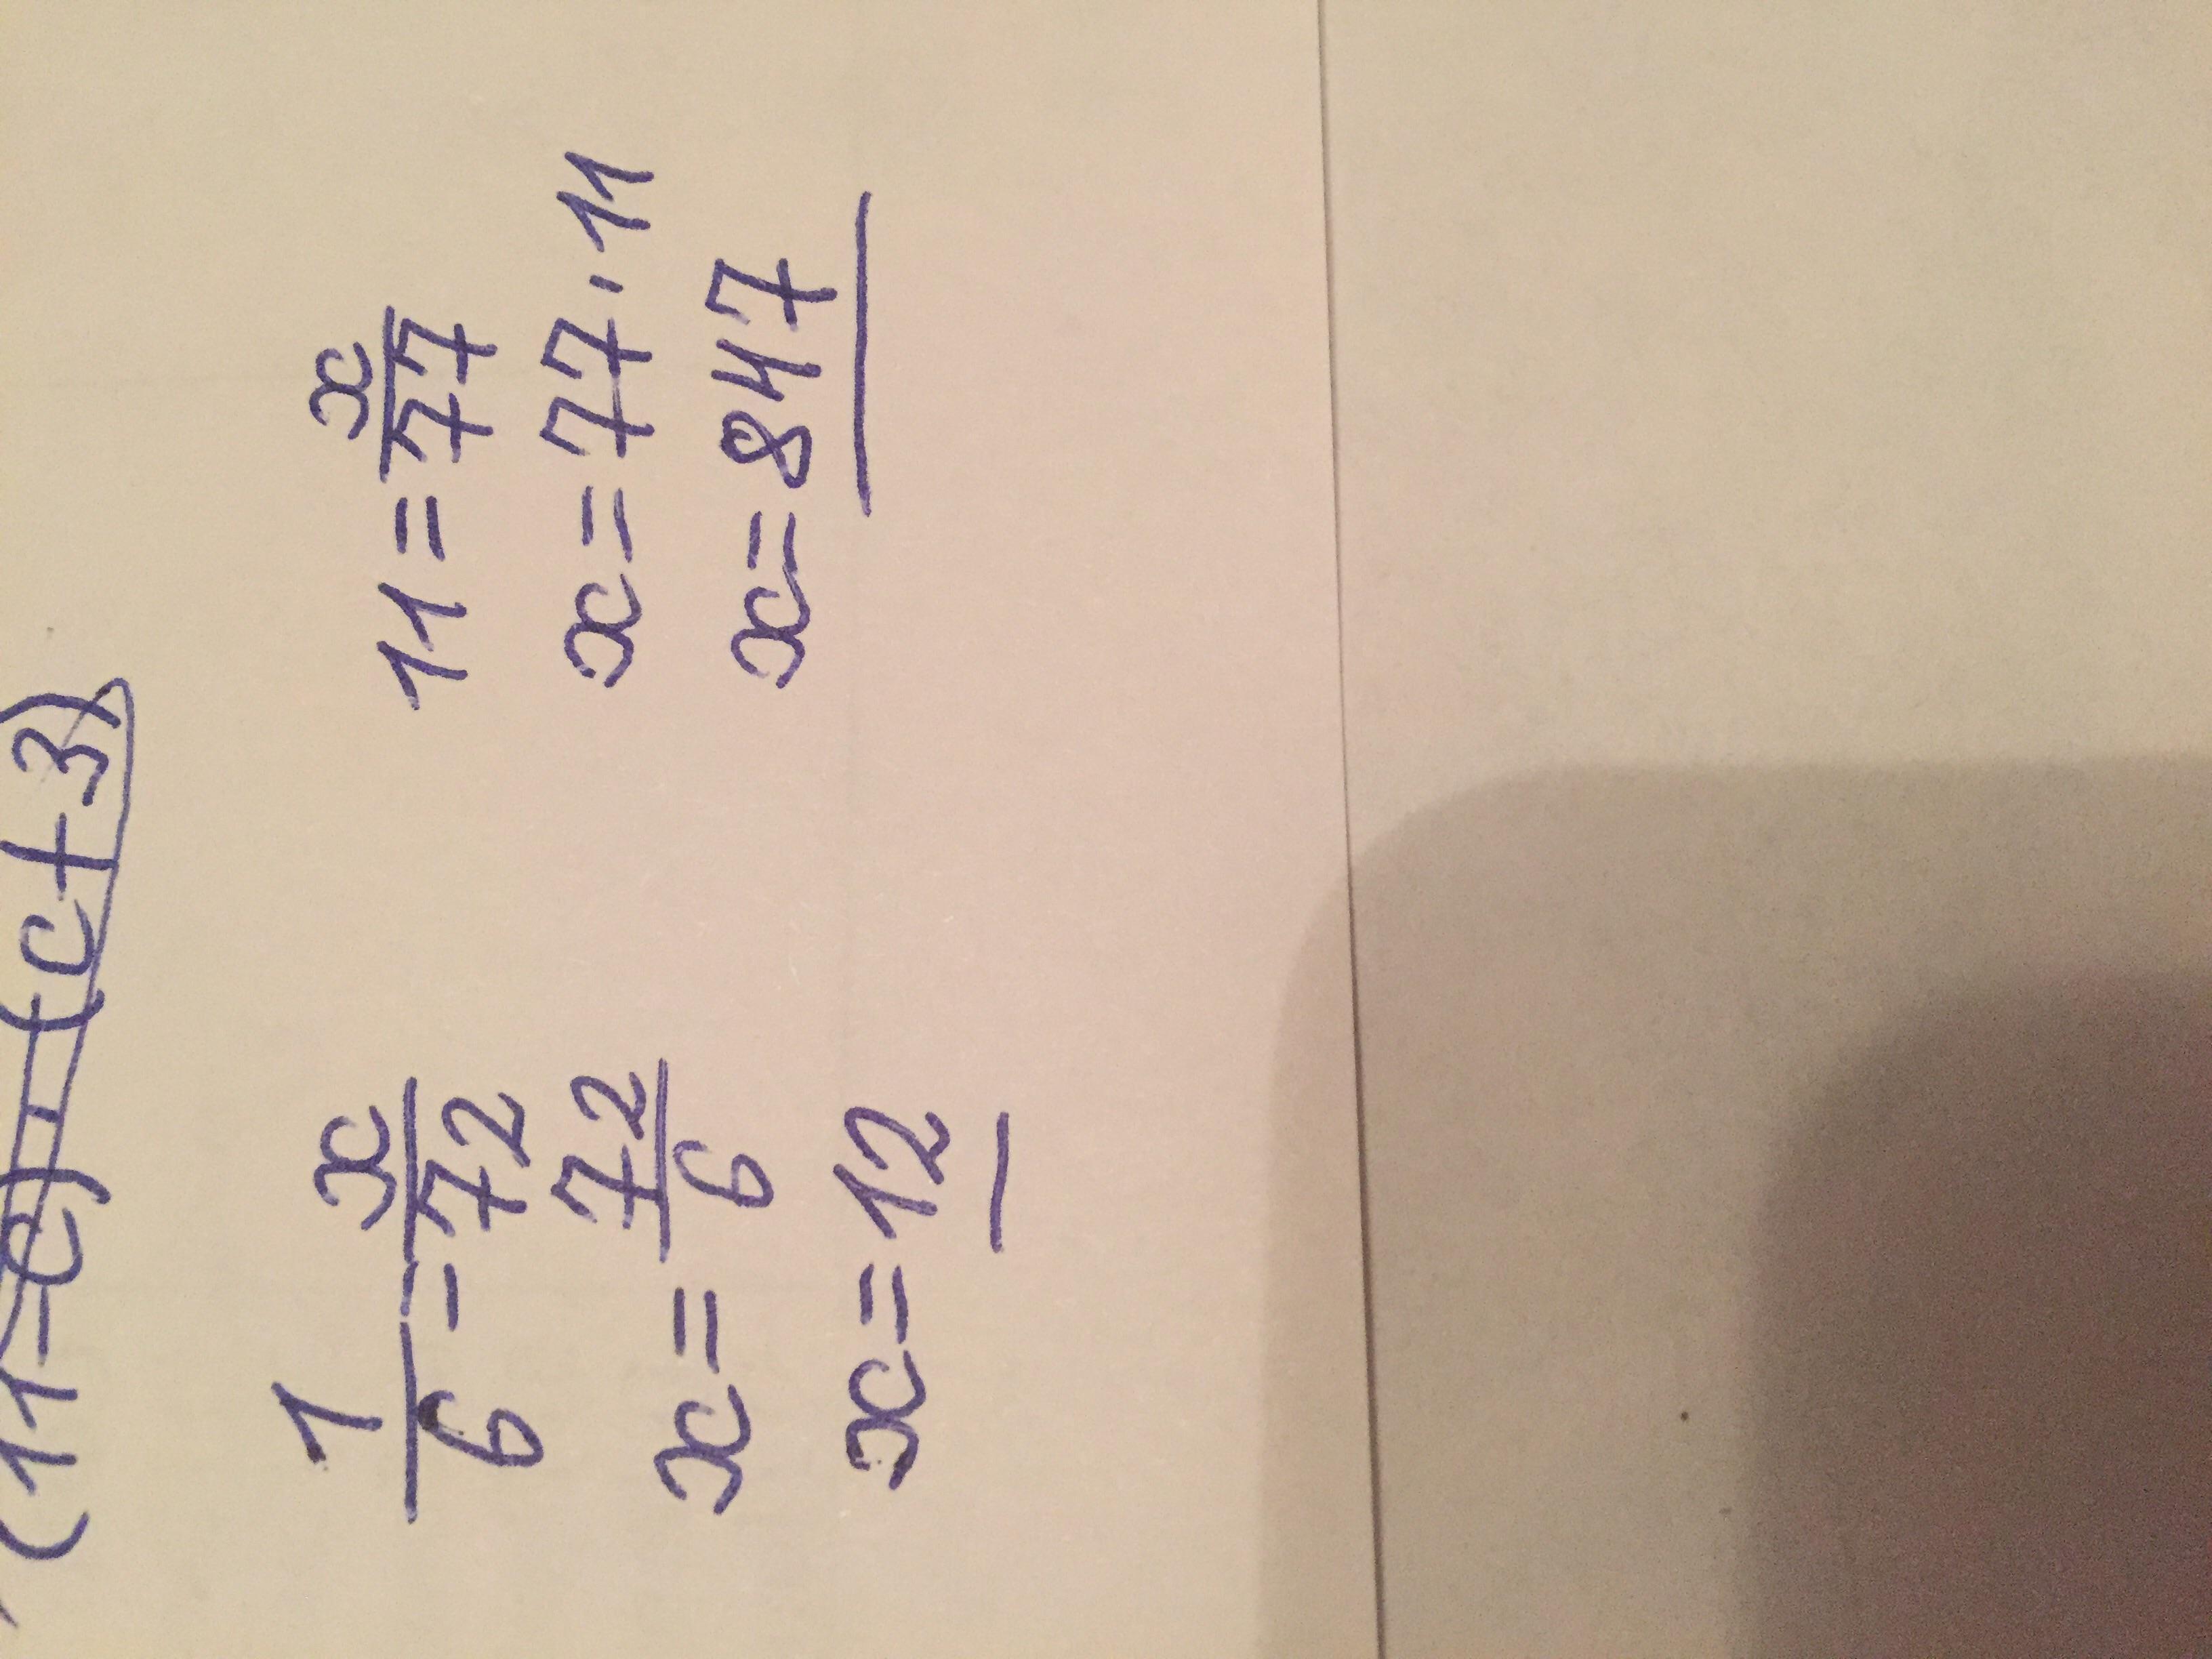 (11-c)-(c+3)
1/6 = x/72
x = 72/6
x = 12
11 = x/77
x = 77 · 11
x = 847